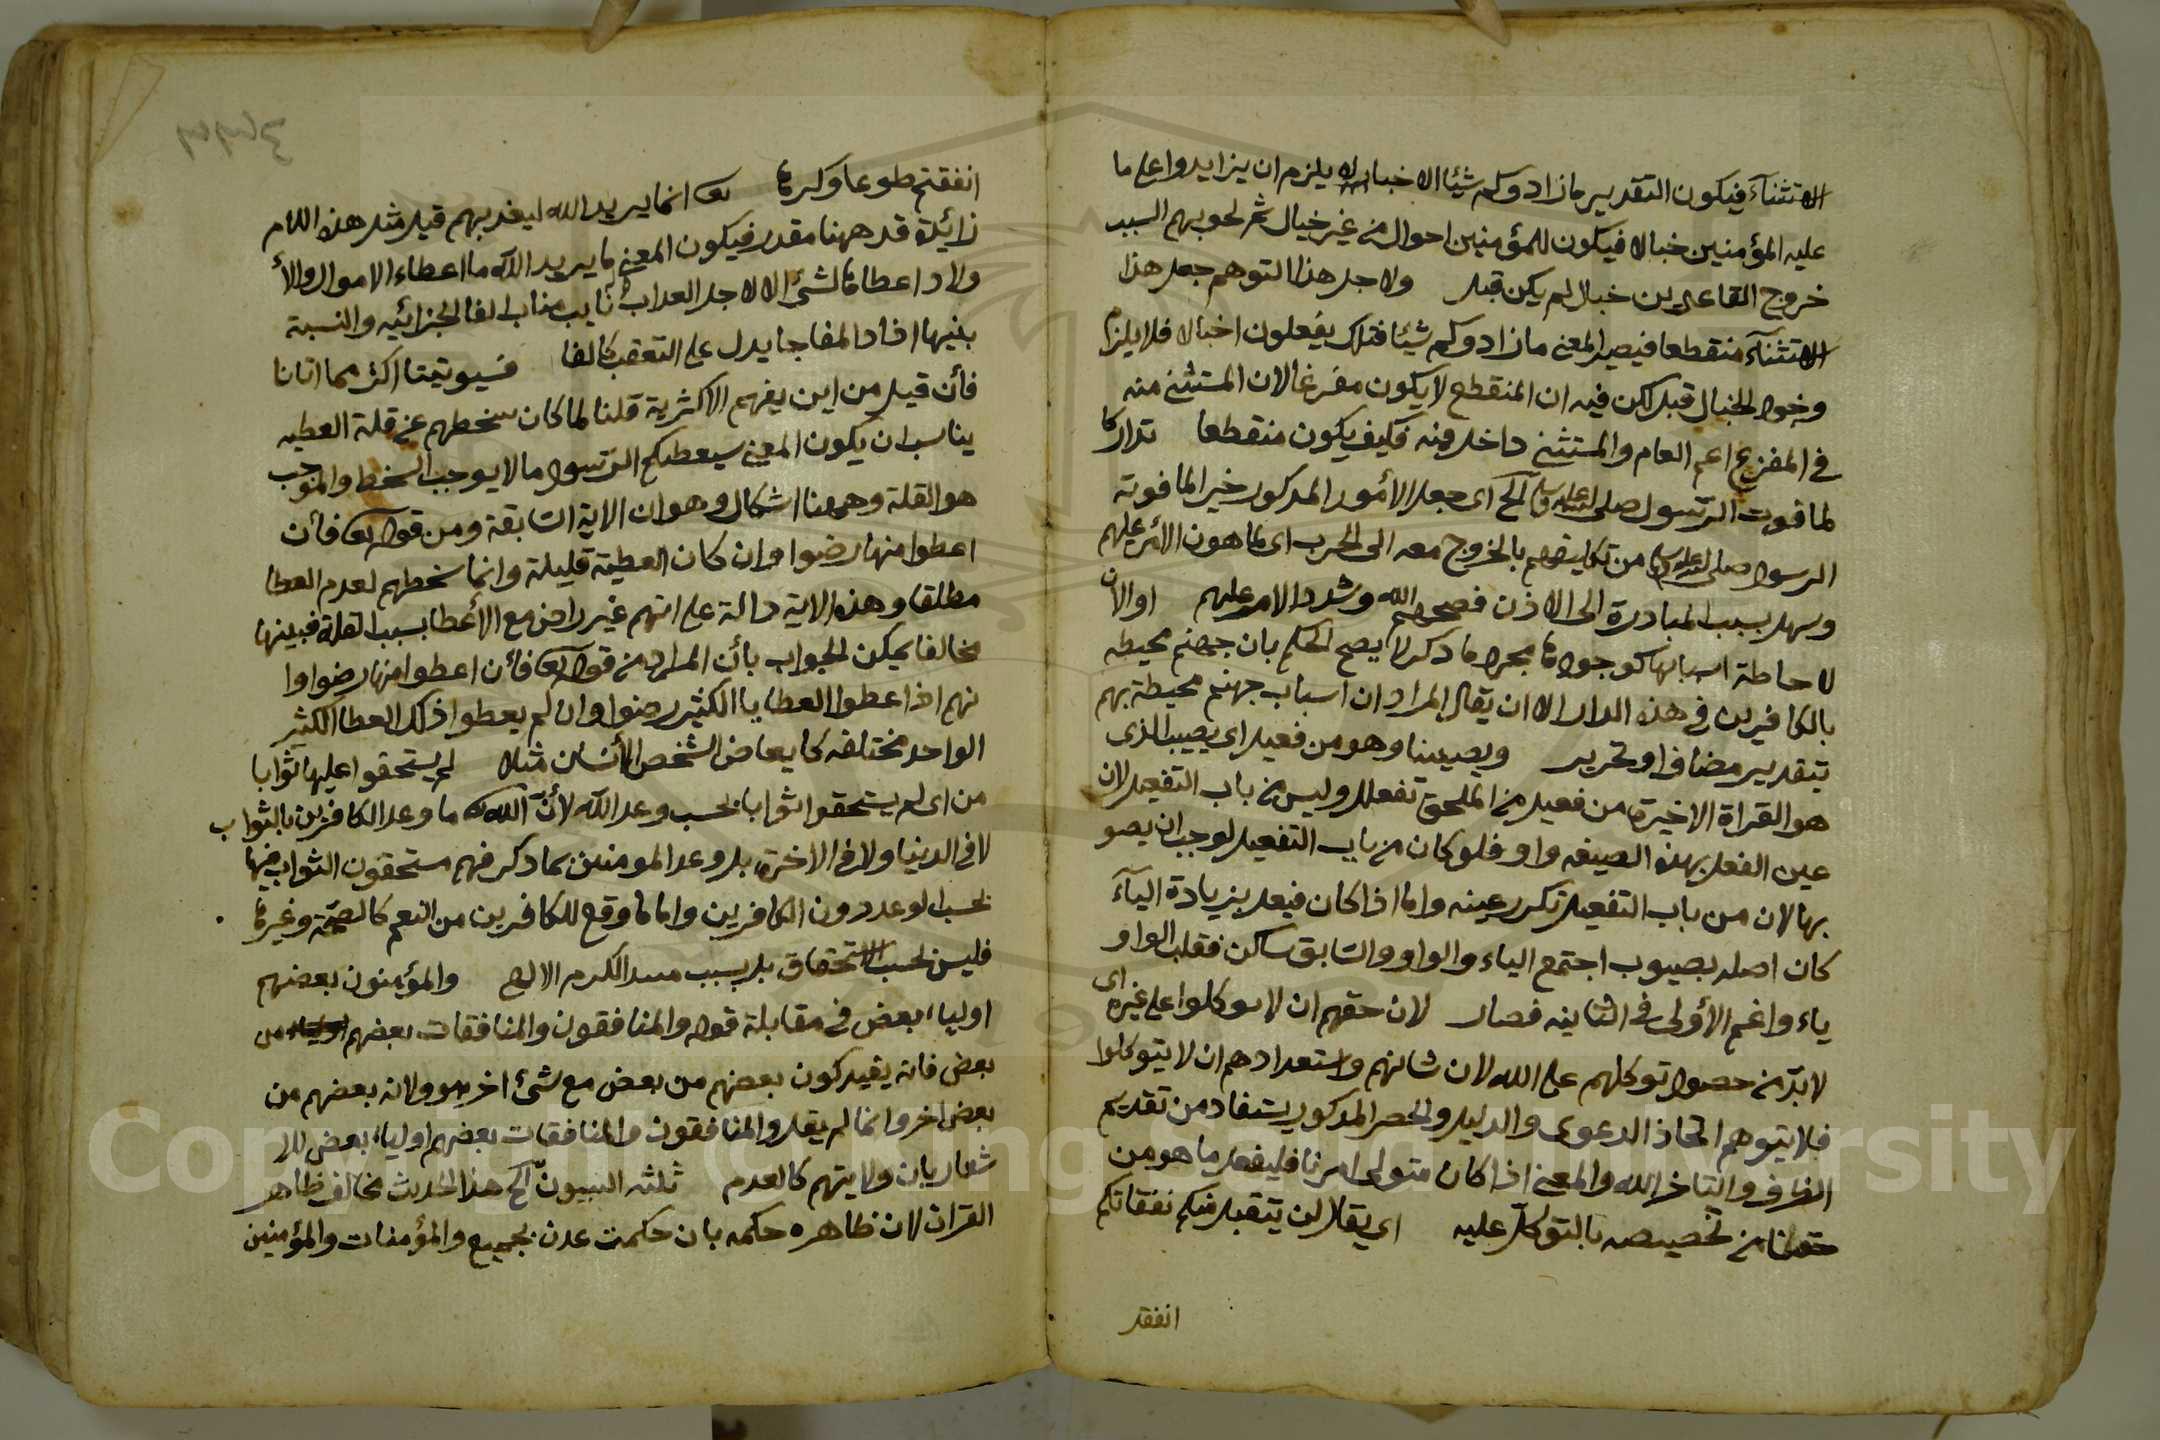 الاستثناء فيكون التقدير ما زادوكم شيئا الا خبالا لا يلزم ان يزايدوا على ما
عليه المؤمنين خبالا فيكون للمؤمنين احوال من غير خبال ثم لحق بهم السبب
خروج القاعدين خبال لم يكن قبل ولاجل هذا التوهم جعل هذا
الاستثناء منقطعا فيصير المعنى ما زادوكم شيئا فتلك يفعلون اخبالا فلا يلزم
وخول الخبال قبل لكن فيه ان المنقطع لا يكون مفرغا لان المستثنى منه
في المفرغ اعم العام والمستثنى داخل منه فكيف يكون منقطعا تداركا
لما فوت الرسول صلى الله عليه وسلم الخ اى جعل الأمور المذكور خبر المافوته
الرسول صلى الله عليه وسلم من تكليفهم بالخروج معه الى الحرب اى لما هون الأمر عليهم
وسهل بسبب المبادرة الى الاذن فصحهم الله وشدد الامر عليهم او الان
لاحاطة اسبابها كوجودها مجرد ما ذكر لا يصح الحكم بان جهنم محيطه
بالكافرين في هذه الدار الا ان يقال المراد ان اسباب جهنم محيطة بهم
بتقدير مضاف او تحرير ويصيبنا وهو من فعيل اى يصيب الذى
هو القراة الاخيرة من فعيل من الملحق تفعلل وليس من باب التفعيل لان
عين الفعل بهذه الصيغه واو فلو كان من باب التفعيل لوجب ان يصو
بها لان من باب التفعيل تكرر عينه واما اذا كان فيعل بزيادة الياء
كان اصله يصيوب اجتمع الياء والواو والسابق ساكن فقلب الواو
ياء وادغم الأولى في الثانيه فصار لان حقهم ان لا يوكلوا على غيره اى
لا بد من حصول توكلهم على الله لان شانهم واستعدادهم ان لا يتوكلوا
فلا يتوهم اتحاذ الدعوى والدليل والحصر المذكور يستفاد من تقديم
الظرف والتاخر الله والمعنى اذا كان متولى امرنا فليفعل ما هو من
حقنا من تخصيصه بالتوكل عليه اى يقال لن يتقبل منكم نفقاتكم
انفقتم
انفقتم طوعا وكرها تعالى انما يريد الله ليعذبهم قيل مثل هذه اللام
زائدة قد ههنا مقدر فيكون المعنى ما يريد الله ما اعطاء الاموال والأ
ولاد اعطاها لشئ الا لاجل العذاب نايب مناب الفا الجزائيه والنسبة
بنيهما اذا المفاجا يدل على التعقب كالفا فسيوتينا اكثر مما اتانا
فأن قيل من اين يفهم الاكثرية قلنا لما كان سخطهم عن قلة العطيه
يناسب ان يكون المعنى سيعطيكم الرسول ما لا يوجب السخط والموجب
هو القلة وههنا اشكال وهو ان الاية السابقة ومن قوله تعالى فأن
اعطوا منها رضوا وان كان العطية قليلة وانما سخطهم لعدم العطا
مطلقا وهذه الاية دالة على انهم غير راض مع الأعطا بسبب القلة فبينهما
مخالفا يمكن الجواب بأن المراد من قوله تعالى فأن اعطوا منها رضوا وا
نهم اذا اعطوا العطايا الكثير رضوا وان لم يعطوا ذلك العطا الكثير
الواحد مختلفه كما يعاض الشخص الأنسان مثلا لم يستحقوا عليها ثوابا
من اى لم يستحقوا ثوابا بحسب وعد الله لأن الله تعالى ما وعد الكافرين بالثواب
لا في الدنيا ولا في الاخرة بل وعد المومنين بما ذكر فهم مستحقون الثواب فيها
بحسب الوعد دون الكافرين واما ما وقع للكافرين من النعم كالصحة وغيرها
فليس بحسب الاستحقاق بل بسبب الكرم الالهى والمؤمنون بعضهم
اولياء بعض في مقابلة قوله والمنافقون والمنافقات بعضهم من
بعض فانه يفيد كون بعضهم من بعض مع شئ اخر ولانه بعضهم من
بعض اخر وانما لم يقل والمنافقون والمنافقات بعضهم اولياء بعض للا
شعار بان ولايتهم كالعدم ثلثه النبيون الخ هذا الحديث مخالف ظاهر
القران لان ظاهره حكمه بان حكمت عدن لجميع والمؤمنات والمؤمنين
Copyright © King Saud University